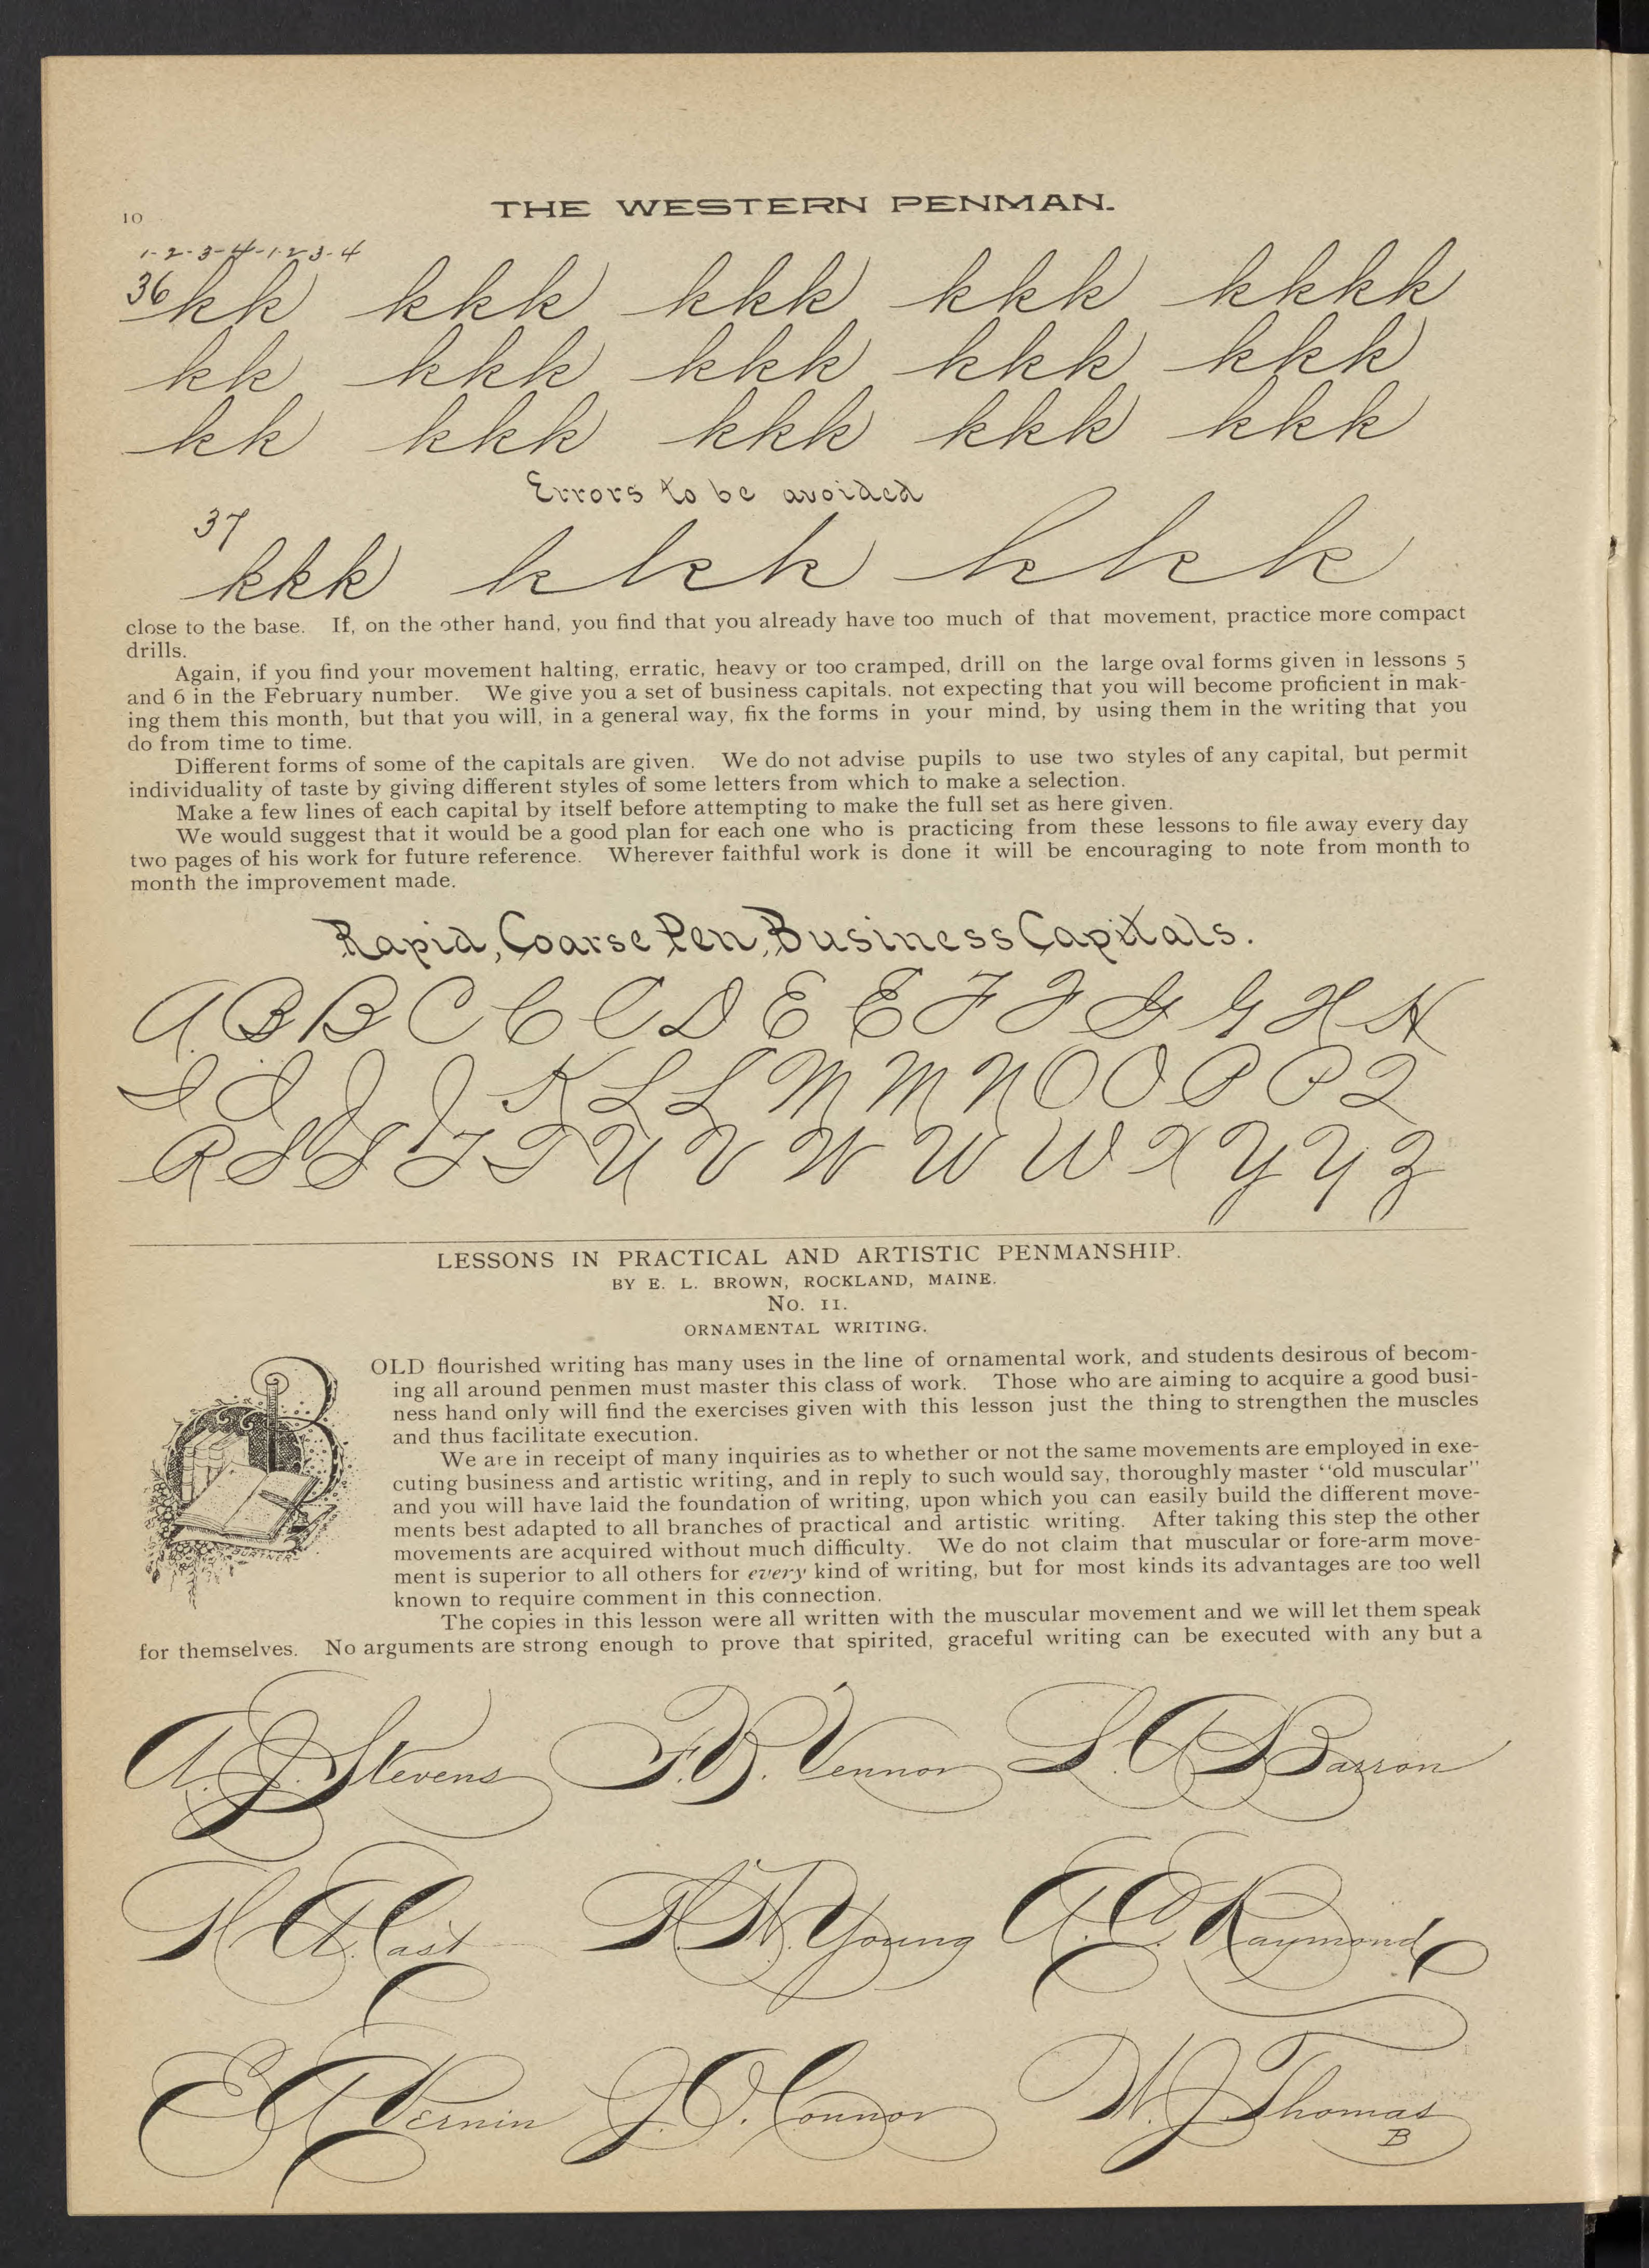 10
THE WESTERN PENMAN.
1-2-3-4-1-2-3-4
36 kk kkk kkk kkk kkkk
kk kkk kkk kkk kkk
kk kkk kkk kkk kkk
Errors to be avoided
37
kkk k k k k k k k
close to the base. If, on the other hand, you find that you already have too much of that movement, practice more compact
drills.
Again, if you find your movement halting, erratic, heavy or too cramped, drill on the large oval forms given in lessons 5
and 6 in the February number. We give you a set of business capitals. not expecting that you will become proficient in mak-
ing them this month, but that you will, in a general way, fix the forms in your mind, by using them in the writing that you
do from time to time.
Different forms of some of the capitals are given. We do not advise pupils to use two styles of any capital, but permit
individuality of taste by giving different styles of some letters from which to make a selection.
Make a few lines of each capital by itself before attempting to make the full set as here given.
We would suggest that it would be a good plan for each one who is practicing from these lessons to file away every day
two pages of his work for future reference. Wherever faithful work is done it will be encouraging to note from month to
month the improvement made.
Rapid, Coarse Pen, Business Capitals.
A B B C C C D E E F F G G H H
I I J J K L L M M N O O P P Q
R S S T T U V W W W X Y Y Z
LESSONS IN PRACTICAL AND ARTISTIC PENMANSHIP.
BY E. L. BROWN, ROCKLAND, MAINE.
No. 11.
ORNAMENTAL WRITING.
BOLD flourished writing has many uses in the line of ornamental work, and students desirous of becom-
ing all around penmen must master this class of work. Those who are aiming to acquire a good busi-
ness hand only will find the exercises given with this lesson just the thing to strengthen the muscles
and thus facilitate execution.
We are in receipt of many inquiries as to whether or not the same movements are employed in exe-
cuting business and artistic writing, and in reply to such would say, thoroughly master "old muscular"
and you will have laid the foundation of writing, upon which you can easily build the different move-
ments best adapted to all branches of practical and artistic writing. After taking this step the other
movements are acquired without much difficulty. We do not claim that muscular or fore-arm move-
ment is superior to all others for every kind of writing, but for most kinds its advantages are too well
known to require comment in this connection.
The copies in this lesson were all written with the muscular movement and we will let them speak
for themselves. No arguments are strong enough to prove that spirited, graceful writing can be executed with any but a
A. J. Stevens F. B. Vennor S. A. Barron
H. A. Cast H. W. Young A. C. Raymond
E. A. Vernin J. O. Connor W. J. Thomas
B